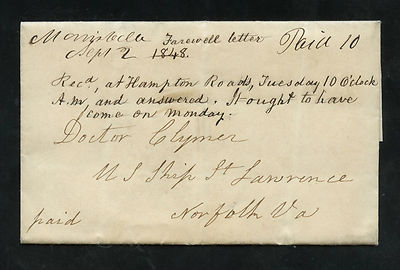 Morrisville Farewell letter Paid 10
Sept 2 1848.
Recd, at Hampton Roads, Tuesday 10 O'clock
A.M, and answered. It ought to have
come on monday.
Doctor Clymer
U S Ship St Lawrence
Norfolk Va
paid